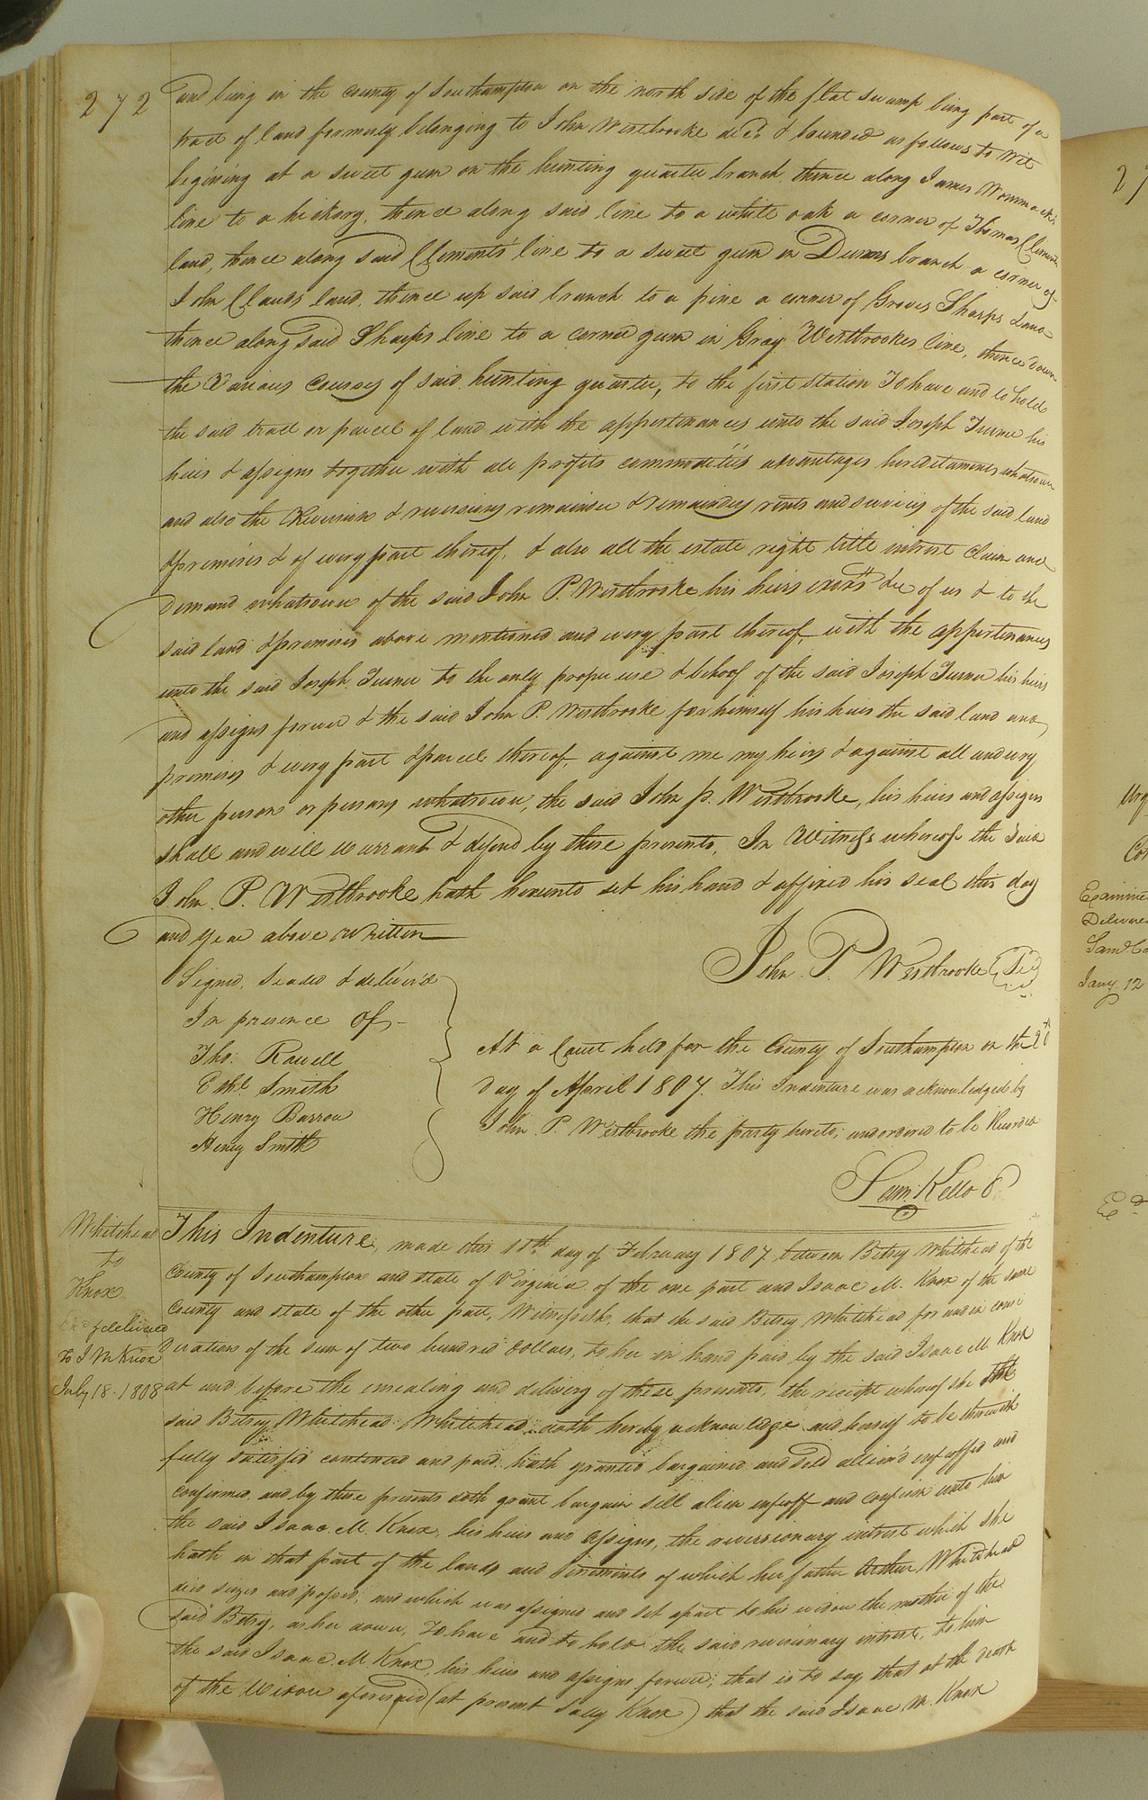 272
and being in the County of Southampton on the north side of the flat swamp being part of a
tract of land formerly belonging to John Westbrooke decd. & bounded as follows to wit
begining at a sweet gum on the hunting quarter branch, thence along James Wommacks
line to a hickory, thence along said line to a white oak a corner of Thomas Clements
land, thence along said Clements line to a sweet gum in Dunns branch a corner of
John Clauds land, thence up said branch to a pine a corner of Groves Sharps Land
thence along said Sharps line to a corner gum in Gray Westbrookes line, thence down
the various Courses of said hunting quarter, to the first station To have and to hold
the said tract or parcel of land with the appertinances unto the said Joseph Turner his
heirs & assigns together with all profits commodities advantages hereditaments whatsoever
and also the Reversion & reversions remainder & remainders rents and services of the said land
& premises & of every part thereof, & also all the estate right title intrest Claim and
Demand whatsoever of the said John P. Westbrooke his heirs exors &c of us & to the
said land & premises above mentioned and every part thereof with the appertinances
unto the said Joseph Turner to the only proper use & behoof of the said Joseph Turner his heirs
and assigns forever & the said John P. Westbrooke for himself his heirs the said land and
premises & every part & parcel thereof against me my heirs & against all and every
other person or persons whatsoever, the said John P. Westbrooke, his heirs and assigns
shall and will warrant & defend by these presents, In Witness whereof the said
John P. Westbrooke hath hereunto set his hand & affixed his seal this day
and year above written
John P. Westbrooke
Signed, Sealed & deliver'd
In presence of
Tho. Rawell
Smith
Henry Barrow
Henry Smith
At a Court held for the County of Southampton on the
Day of April 1807. This Indenture was acknowledged by
John P. Westbrooke the party hereto, and ordered to be Recorded
Sam. Kello C
Whitehead
to
Knox
delivered
To I M Knox
July 18. 1808
This Indenture, made this 11th day of February 1807 between Betsey Whitehead of the
County of Southampton and state of Virginia of the one part and Isaac M. Knox of the same
County and state of the other part, Witnesseth, that the said Betsey Whitehead for and in consi
deration of the sum of two hundred dollars, to her in hand paid by the said Isaac M Knox
at and before the ensealing and delivery of these presents, the receipt whereof she the
said Betsey Whitehead Whitehead doth hereby acknowledge and herself to be therewith
fully satisfied contented and paid hath granted bargained and sold aliened enfeoffed and
confirmed, and by these presents doth grant bargain sell alien enfeoff and confirm unto him
the said Isaac M. Knox, his heirs and assigns, the reversionary intrest which she
hath in that part of the lands and tenements of which her father Arthur Whitehead
died seized and possd. and which was assigned and set apart to his widow the mother of the
said Betsey, as her dower, To have and to hold the said reversionary intrest, to him
the said Isaac M Knox, his heirs and assigns forever; that is to say, that at the death
of the Widow aforesaid (at present Sally Knox) that the said Isaac M. Knox
Examined
Delivered
Jany 12